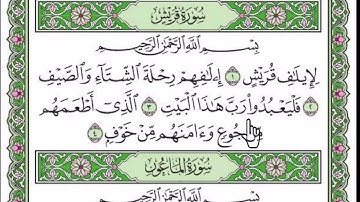 سُورَةُ قُرَيْشٍ
بِسْمِ ٱللَّهِ ٱلرَّحْمَٰنِ ٱلرَّحِيمِ
لِإِيلَٰفِ قُرَيْشٍ ١ إِۦلَٰفِهِمْ رِحْلَةَ ٱلشِّتَآءِ وَٱلصَّيْفِ
٢ فَلْيَعْبُدُوا۟ رَبَّ هَٰذَا ٱلْبَيْتِ ٣ ٱلَّذِىٓ أَطْعَمَهُم
جُوعٍ وَءَامَنَهُم مِّنْ خَوْفٍۭ ٤
سُورَةُ ٱلْمَاعُونِ
بِسْمِ ٱللَّهِ ٱلرَّحْمَٰنِ ٱلرَّحِيمِ